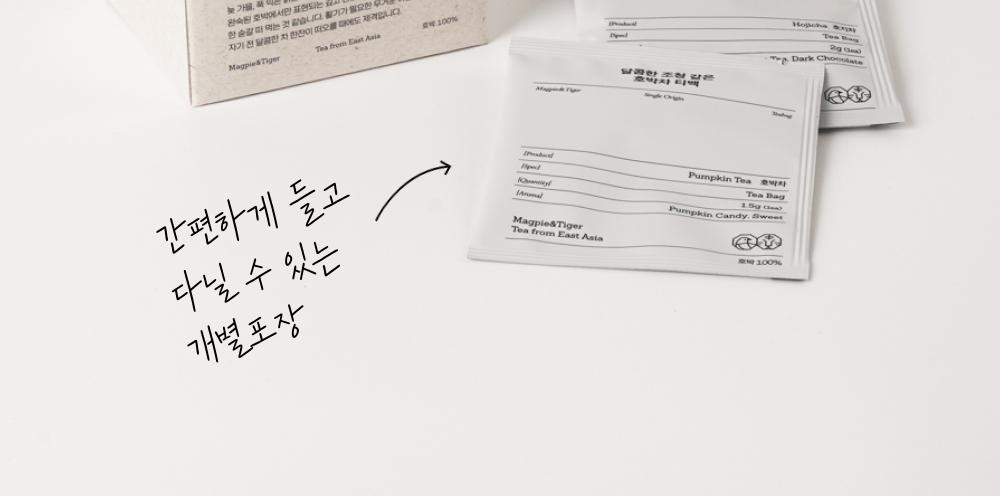 늦 가을, 푹 익은
완숙된 호박에서만 표현되는 깊고
한 숟갈 떠 먹는 것 같습니다. 활기가 필요한 무거운
자기 전 달콤한 차 한잔이 떠오를 때에도 제격입니다.
Magpie&Tiger
Tea from East Asia
호박 100%
[Product]
Hojicha 호지차
[Spec]
Tea Bag
2g (1ea)
Dark Chocolate
달콤한 조청 같은
호박차 티백
Magpie&Tiger
Single Origin
Teabag
[Product]
Pumpkin Tea 호박차
[Spec]
Tea Bag
[Quantity]
1.5g (1ea)
[Aroma]
Pumpkin Candy, Sweet
Magpie&Tiger
Tea from East Asia
호박 100%
간편하게 들고
다닐 수 있는
개별포장